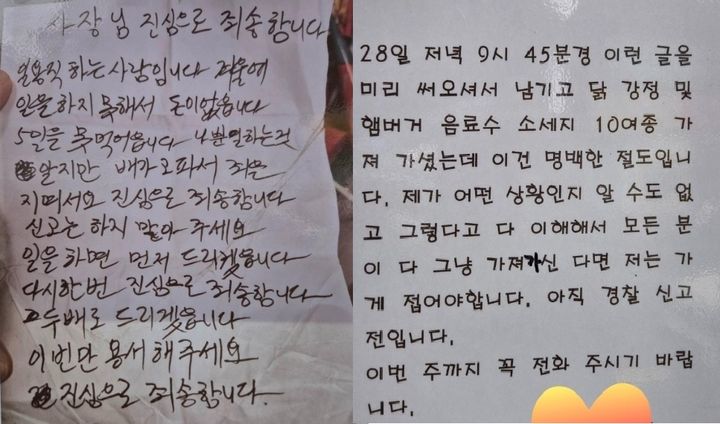 사장님 진심으로 죄송합니다
일용직 하는 사람입니다 겨울에
일을 하지 못해서 돈이 없습니다
5일을 못 먹어습니다 나뿐일 하는것
알지만 배가 고파서 죄을
지며서요 진심으로 죄송합니다
신고는 하지 말아 주세요
일을 하면 먼저 드리겠읍니다
다시한번 진심으로 죄송합니다
두배로 드리겠읍니다
이번만 용서해주세요
진심으로 죄송합니다.
28일 저녁 9시 45분경 이런 글을
미리 써오셔서 남기고 닭 강정 및
햄버거 음료수 소세지 10여종 가
져 가셨는데 이건 명백한 절도입니
다. 제가 어떤 상황인지 알 수도 없
고 그렇다고 다 이해해서 모든 분
이 다 그냥 가져가신 다면 저는 가
게 접어야합니다. 아직 경찰 신고
전입니다.
이번 주까지 꼭 전화 주시기 바랍
니다.